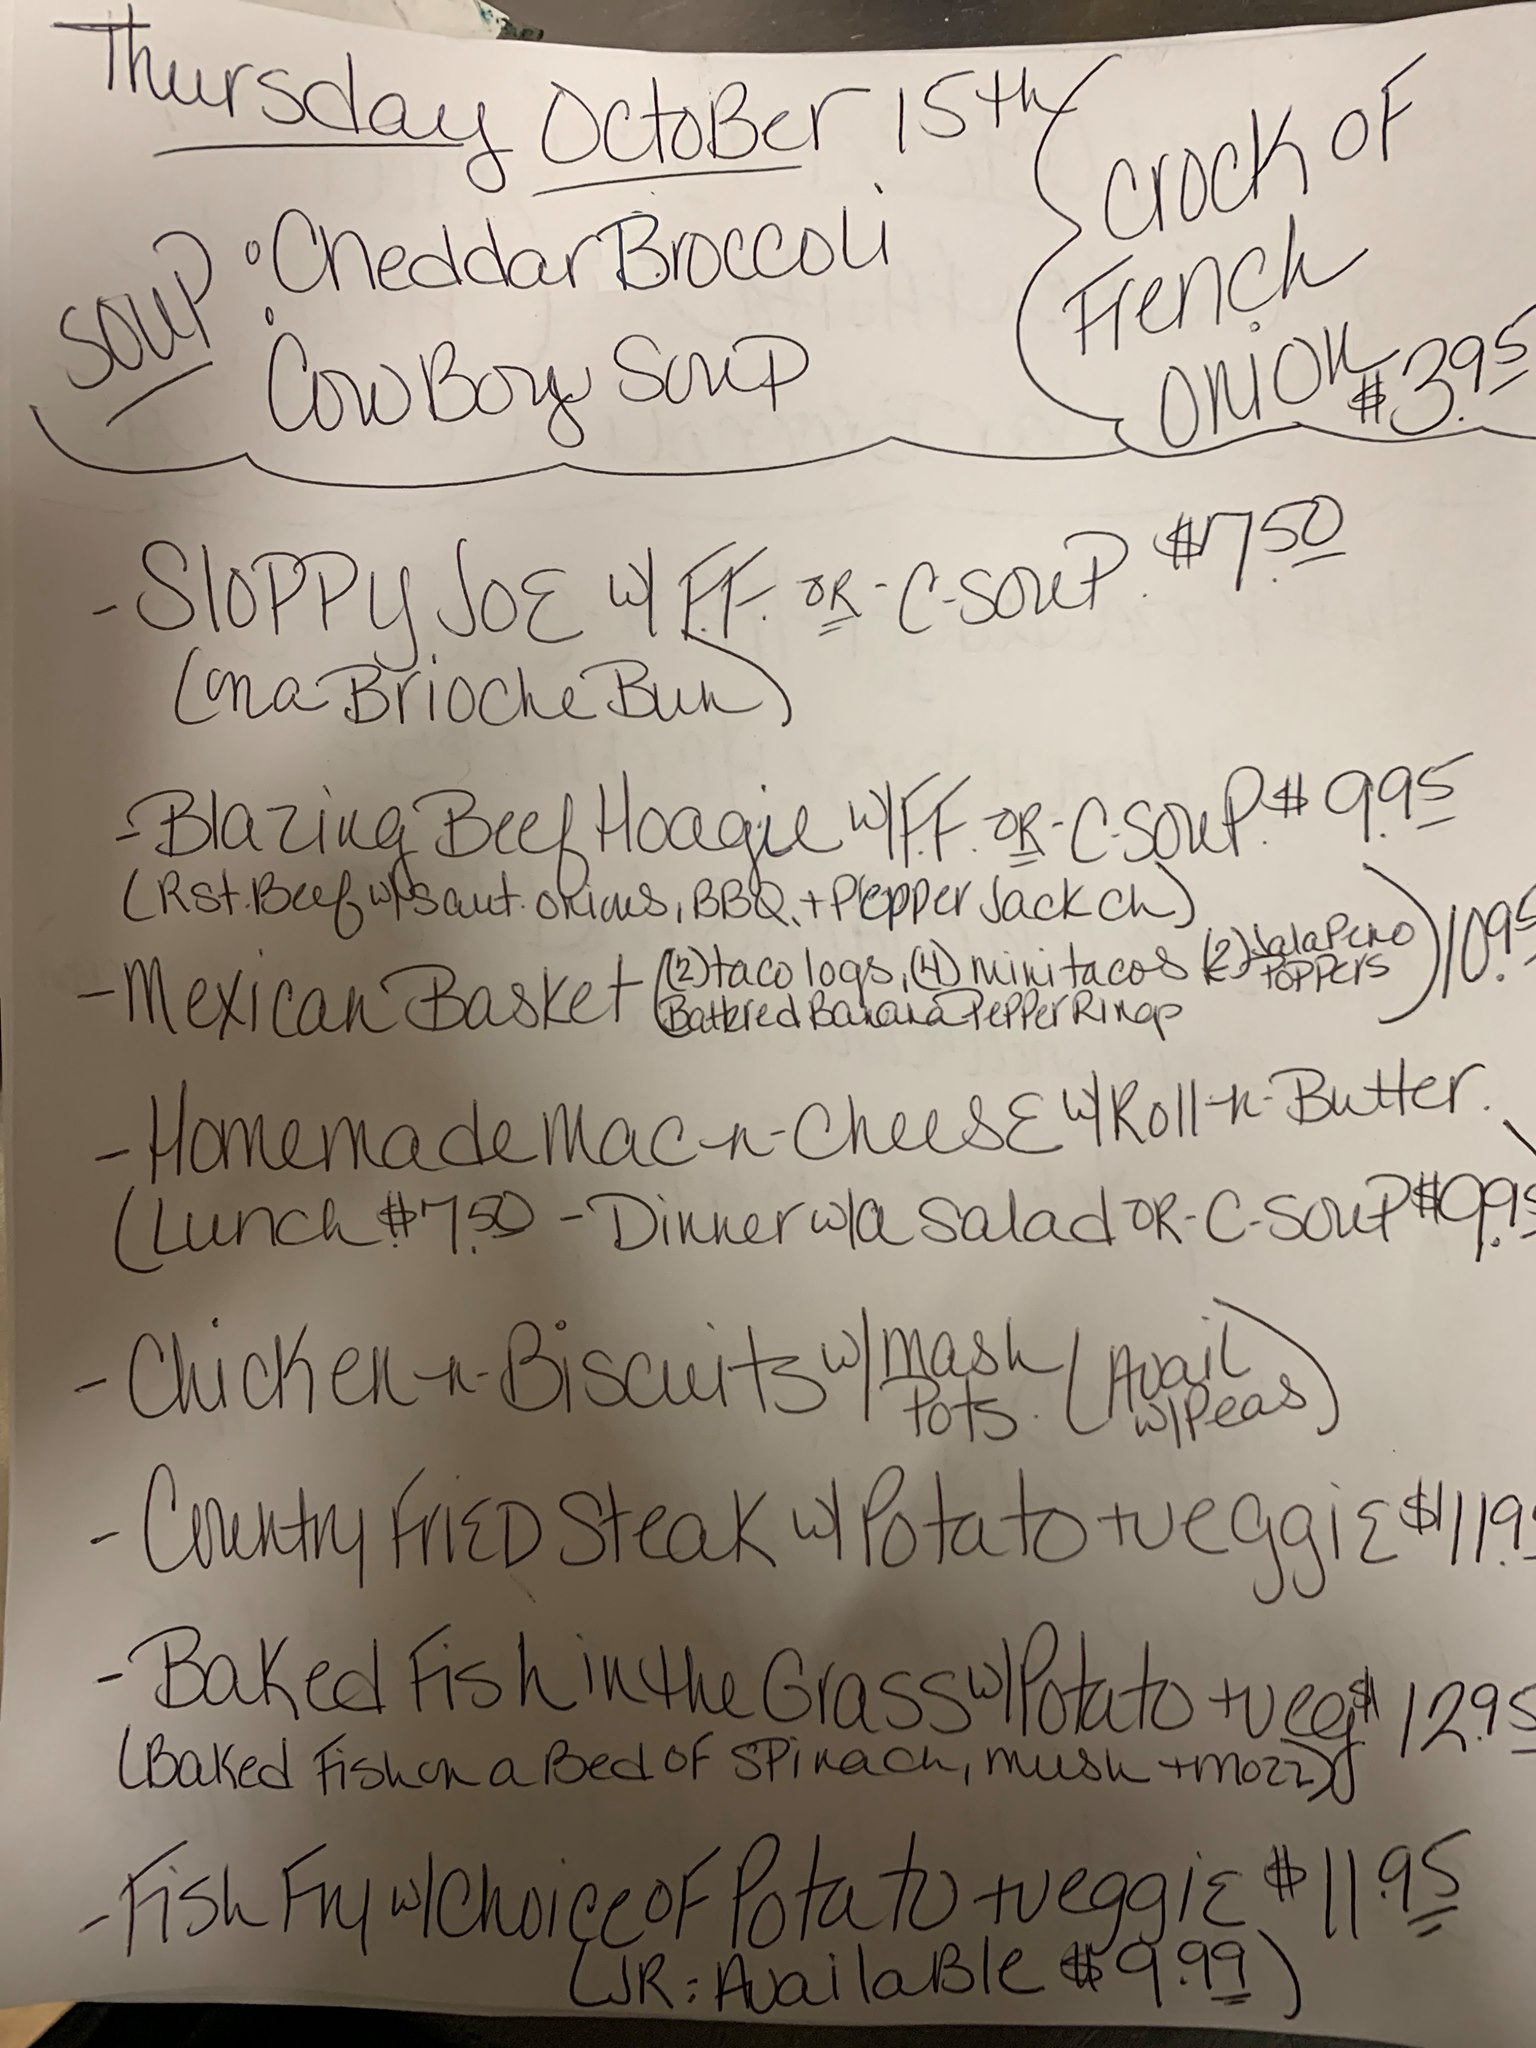 Thursday October 15th
SOUP
• Cheddar Broccoli
• CowBoy Soup
Crock OF
French
Onion $3.95
- Sloppy Joe w/ F.F. OR - C-Soup. $7.50
(on a Brioche Bun)
- Blazing Beef Hoagie w/ F.F. OR - C-Soup. $9.95
(Rst. Beef w/ saut. onions, BBQ, + Pepper Jack ch)
- Mexican Basket ((2) taco logs, (4) mini tacos (2) Jalapeno Poppers
Battered Banana Pepper Rings) 10.95
- Homemade Mac-n-Cheese w/ Roll-n-Butter.
(Lunch $7.50 - Dinner w/a salad OR - C-Soup $9.95
- Chicken-n-Biscuits w/ Mash Pots. (Avail w/ Peas)
- Country Fried Steak w/ Potato + veggie $11.95
- Baked Fish in the Grass w/ Potato + veg $12.95
(Baked Fish on a Bed of Spinach, mush + mozz)
- Fish Fry w/ Choice OF Potato + veggie $11.95
(JR: Available $9.99)